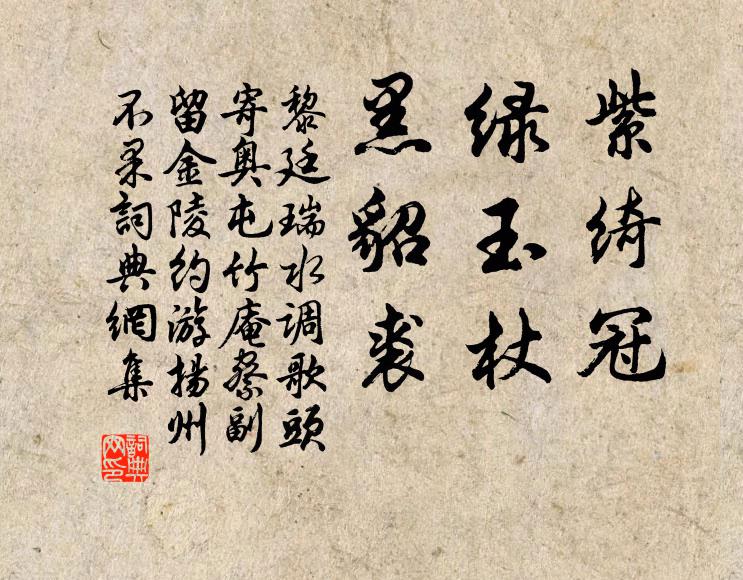 紫绮冠
绿玉杖
黑貂裘
黎廷瑞水调歌頭
寄奥屯竹庵察副
留金陵约游揚州
不果詞典網集
詞典
网印